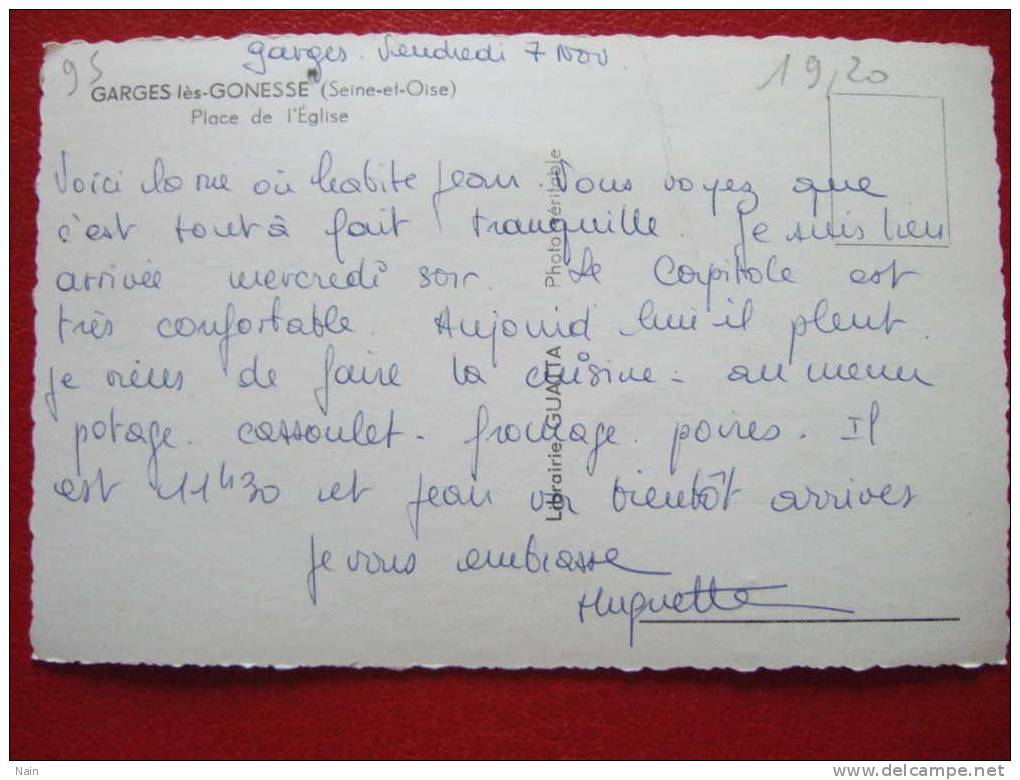 Garges. Vendredi 7 Nov.
95
19,20
GARGES lès-GONESSE (Seine-et-Oise)
Place de l'Église
Voici la rue où habite Jean. Vous voyez que
c'est tout à fait tranquille. Je suis bien
arrivée mercredi soir. Le Capitole est
très confortable. Aujourd'hui il pleut.
Je viens de faire la cuisine - au menu
potage. cassoulet - fromage. poires. Il
est 11h30 et Jean va bientôt arriver
Je vous embrasse
Huguette
Librairie GUATTA - Photo véritable
Nain
www.delcampe.net